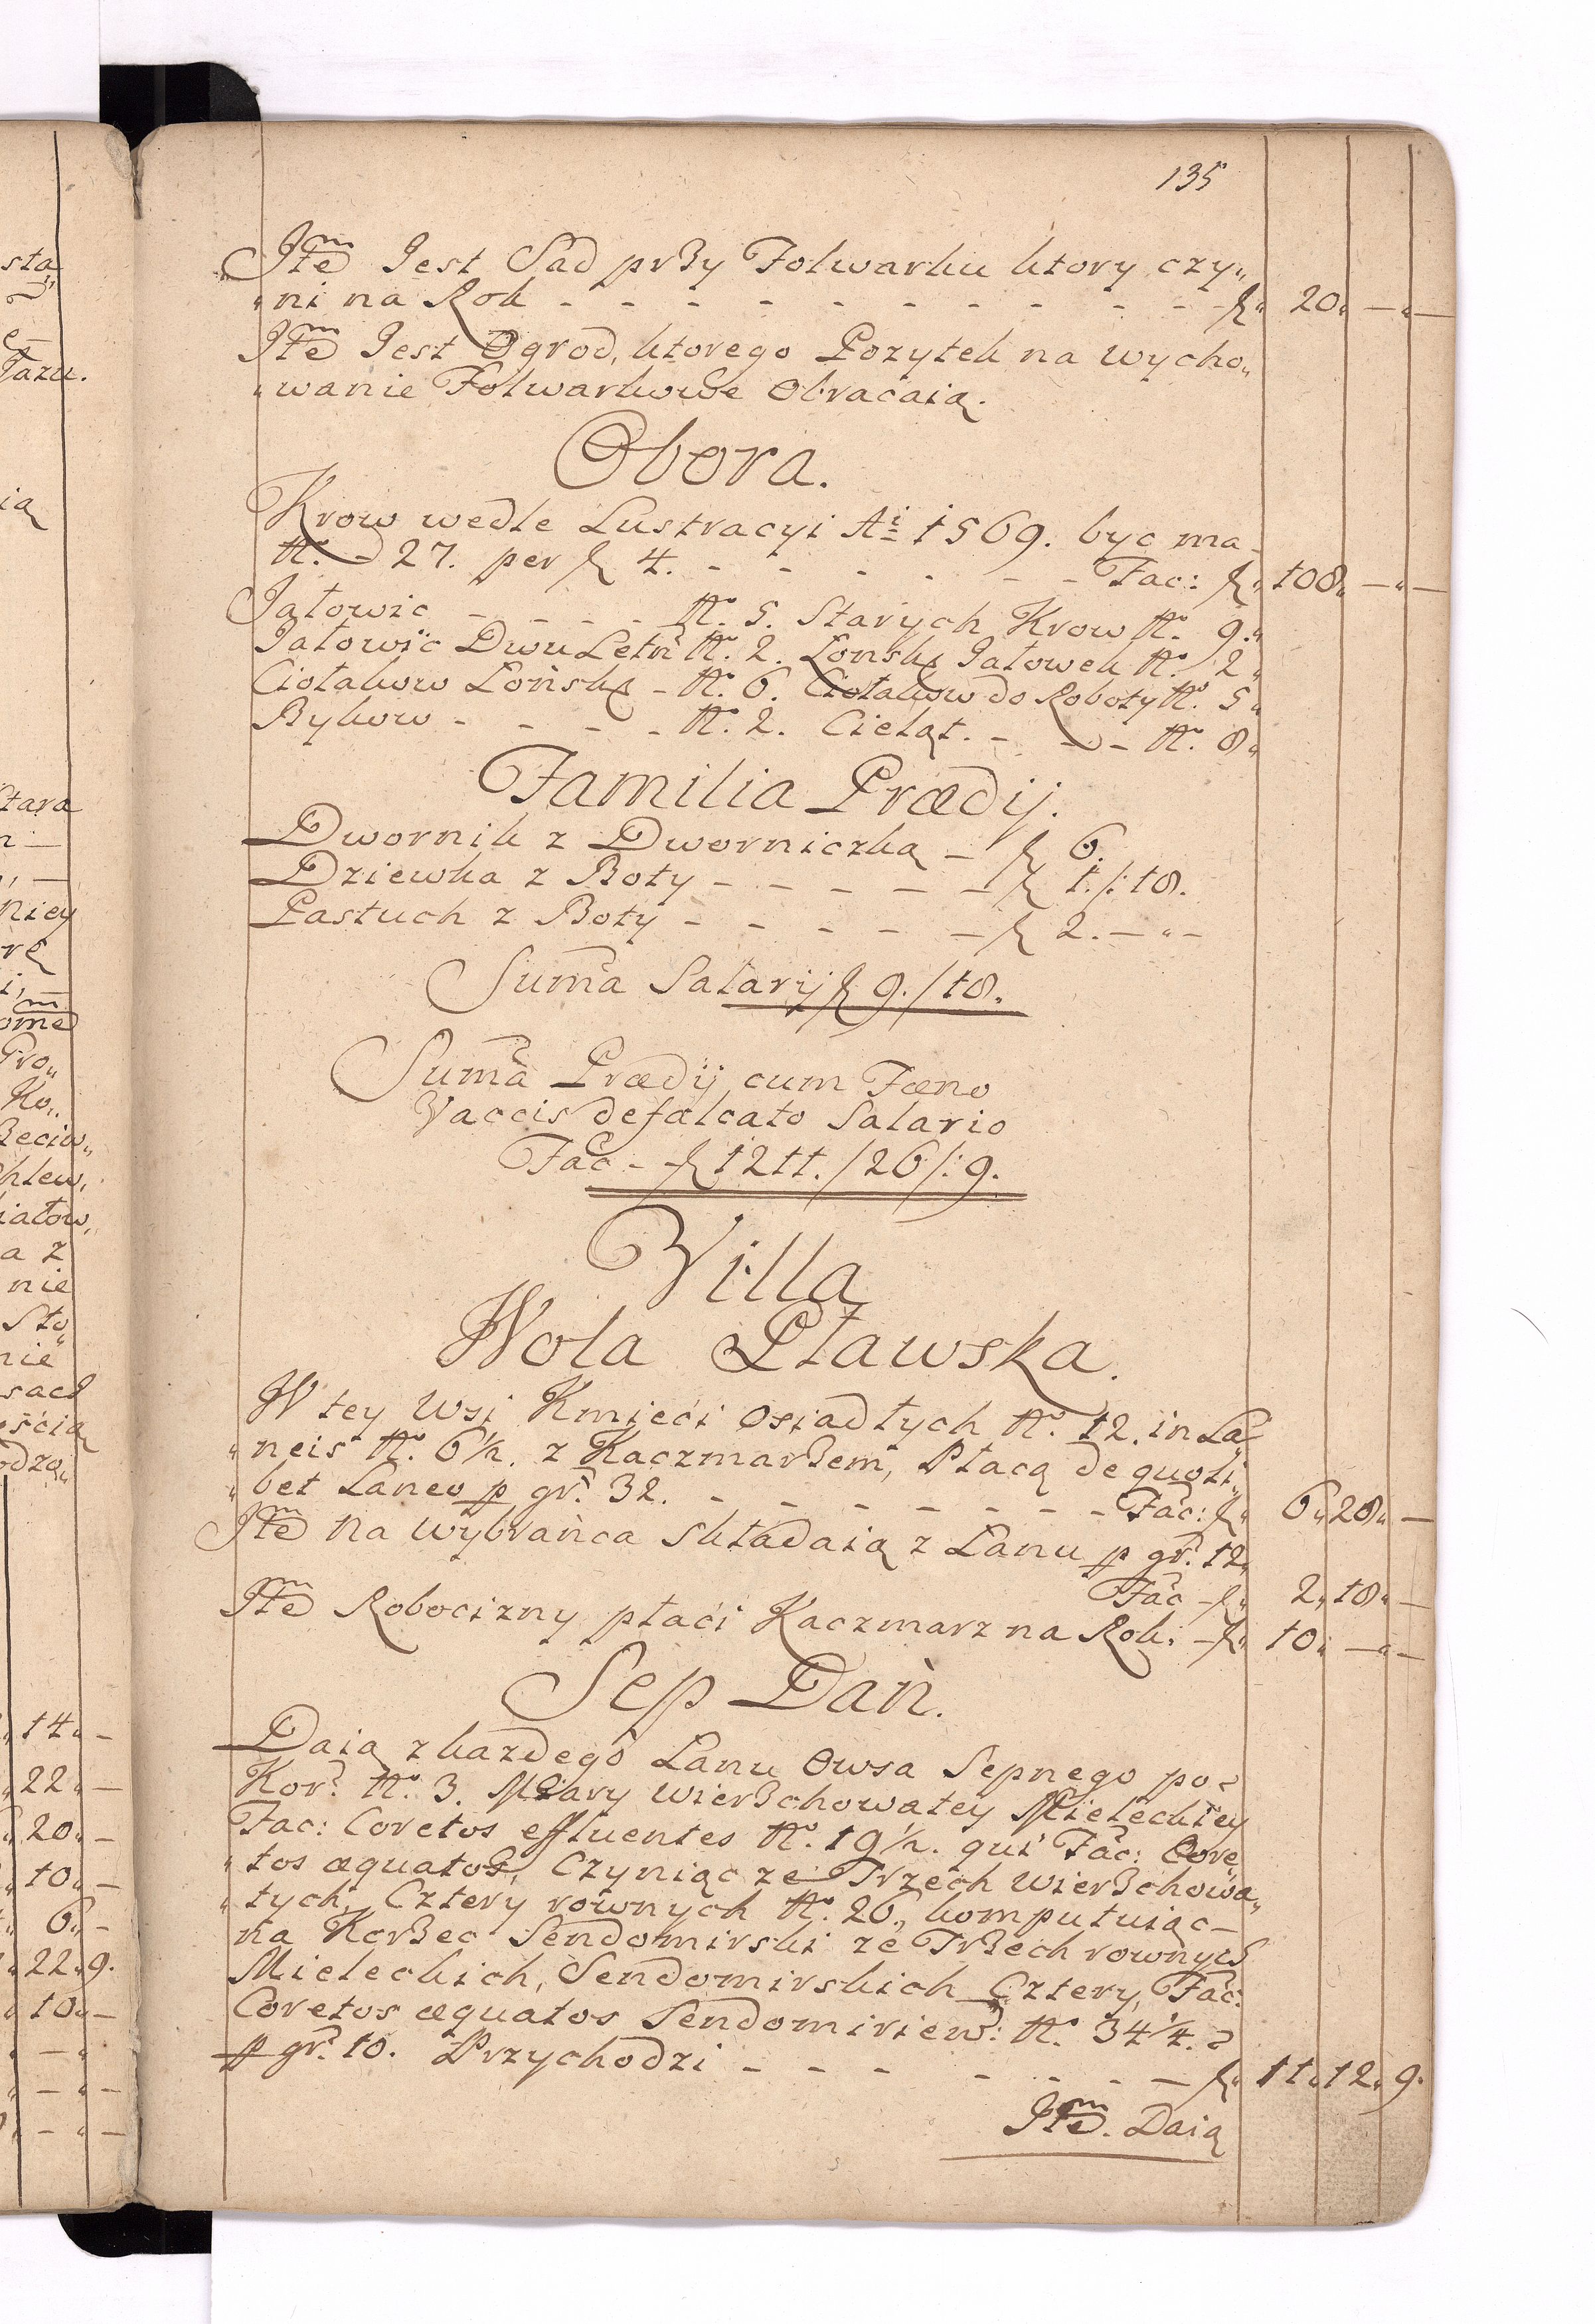 135
Jtem Jest Sad przy Folwarku ktory czy„
„ni na Rok - - - - - - - - - - - f„ 20„ —„—
Jtem Jest Ogrod, ktorego Pozytek na wycho„
„wanie Folwarkowe Obracaią.
Obora.
Krow wedle Lustracyi Ai 1569. byc ma-
No. 27. per f 4. - - - - - - Fac: f„ 108„ —„—
Jatowic - - - - No. 5. Starych Krow No. 9.„
Jatowic Dwu Letń No. 2. Łonsk: Jatowek No. 2„
Ciołakow Łońsk: - No. 6. Ciołakow do Roboty No. 5„
Bykow - - - - No. 2. Cieląt. - - - No. 8„
Familia Prædij.
Dwornik z Dworniczką - f 6.
Dziewka z Boty - - - - - f 1./: 18.
Pastuch z Boty - - - - - f 2. — „ -
Suma Salarij f 9./18.
Suma Prædij cum Fæno
Vaccis defalcato Salario
Fac - f 1211./26/: 9.
Villa
Wola Pławska.
W tey Wsi Kmieci osiadłych No. 12. in La„
„neis No. 6½. z Kaczmarzem, Płacą de quoli„
„bet Laneo p gr. 32. - - - - - - - Fac: f„ 6„ 28„ —
Jtem na wybrańca składaią z Lanu p gr. 12„
Fac - f„ 2„ 18„ —
Jtem Robocizny płaci Kaczmarz na Rok: - f„ 10„ —„—
Sep Dań.
Daią z kazdego Lanu Owsa Sepnego po
Kor. No. 3. Miary wierzchowatey Mieleckiey
Fac: Coretos effluentes No. 19½. qui Fac: Core„
„tos æquatos, Czyniąc ze Trzech wierzchowa„
„tych, Cztery rownych No. 26., komputuiąc—
na Korzec Sendomirski ze Trzech rownych
Mieleckich, Sendomirskich Cztery, Fac:
Coretos æquatos Sendomirien: No. 34¼.
p gr. 10. Przychodzi - - - - - - f„ 11„ 12„ 9.
Jtem. Daią